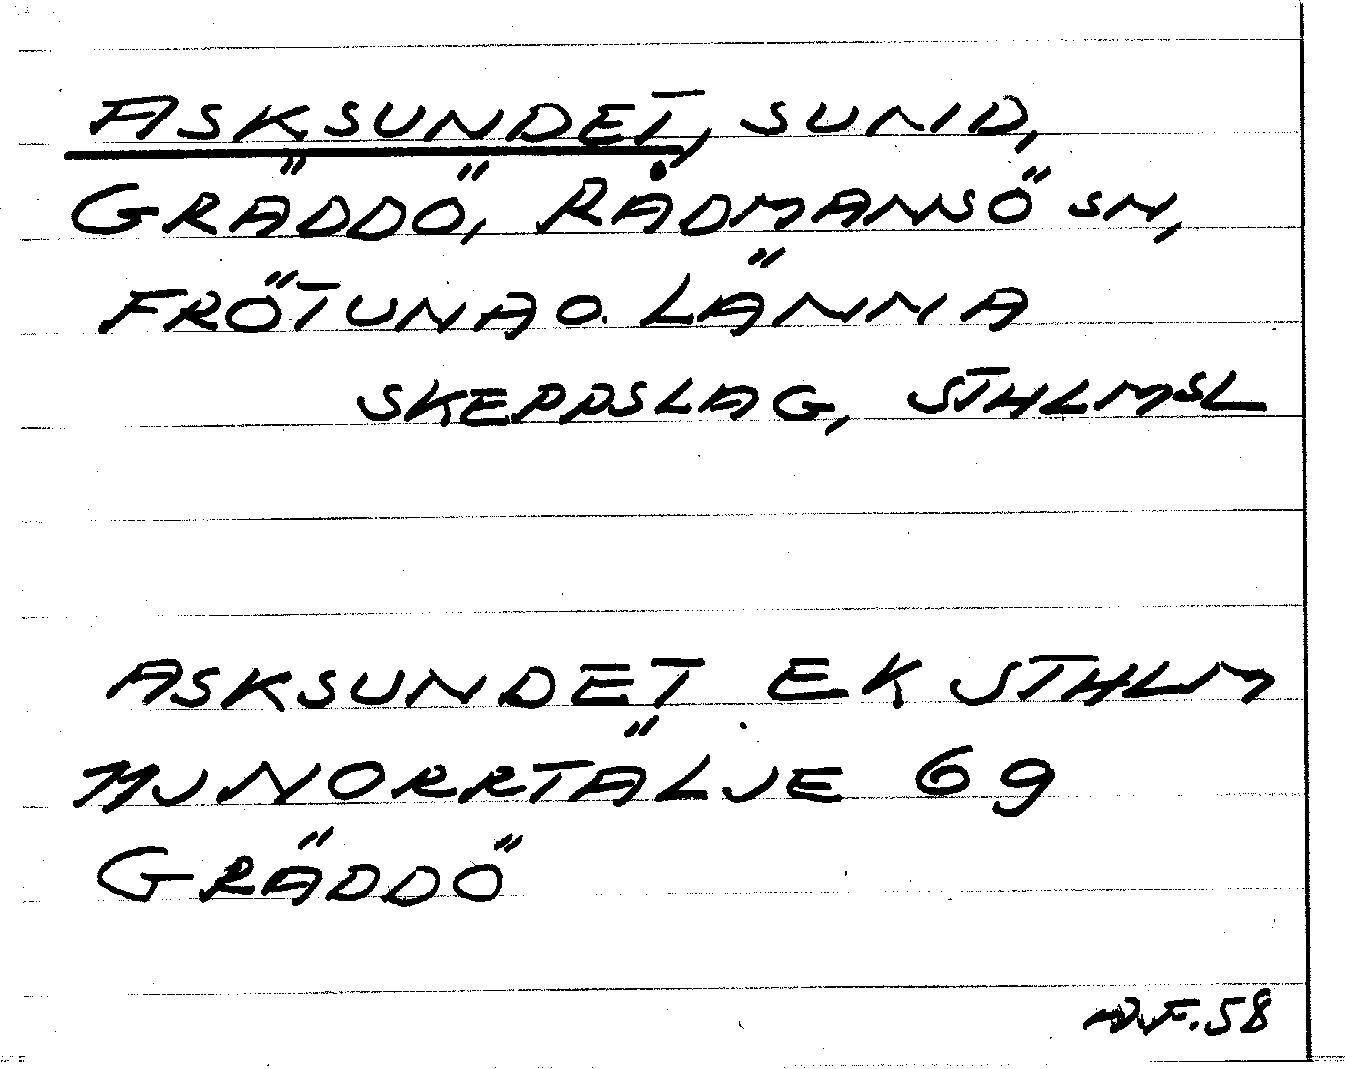 ASKSUNDET, SUND,
GRÄDDÖ, RÅDMANSÖ SN,
FRÖTUNA O. LÄNNA
SKEPPSLAG, STHLMSL
ASKSUNDET EK STHLM
MJ NORRTÄLJE 69
GRÄDDÖ
58